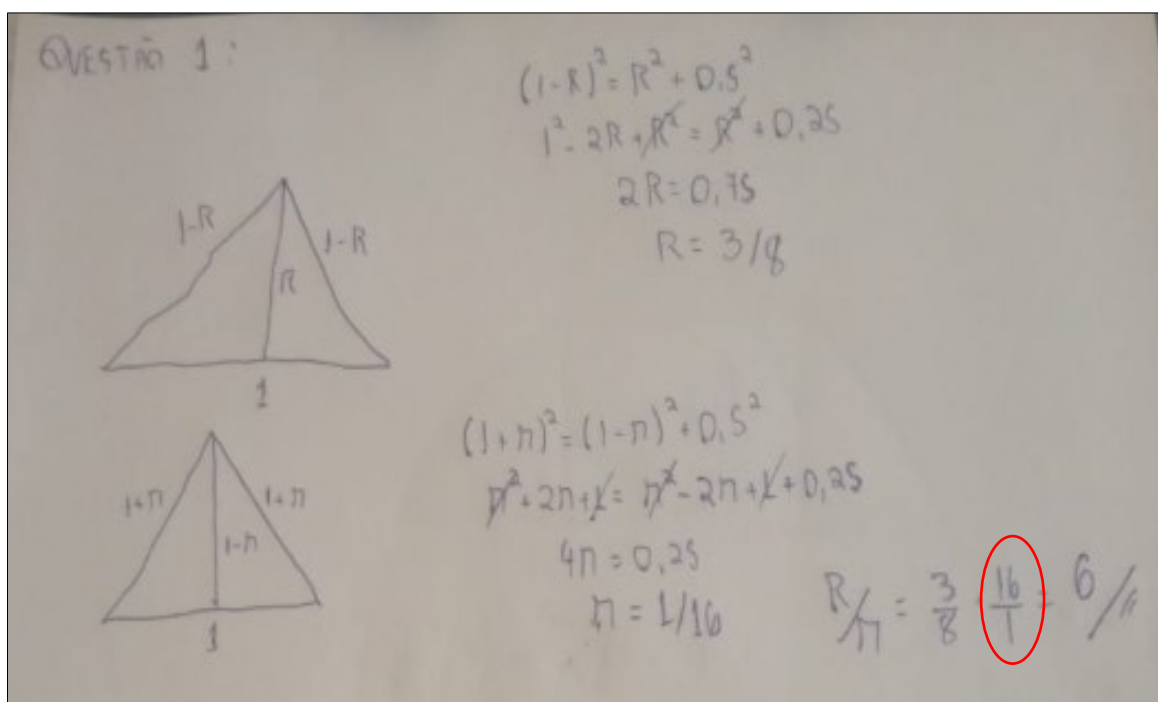 QUESTÃO 1:
(1-R)² = R² + 0,5²
1² - 2R + R² = R² + 0,25
2R = 0,75
R = 3/8
1-R
1-R
R
1
(1+n)² = (1-n)² + 0,5²
n² + 2n + 1 = n² - 2n + 1 + 0,25
4n = 0,25
n = 1/16
1+n
1+n
1-n
1
R/n = 3/8 · 16/1 = 6//